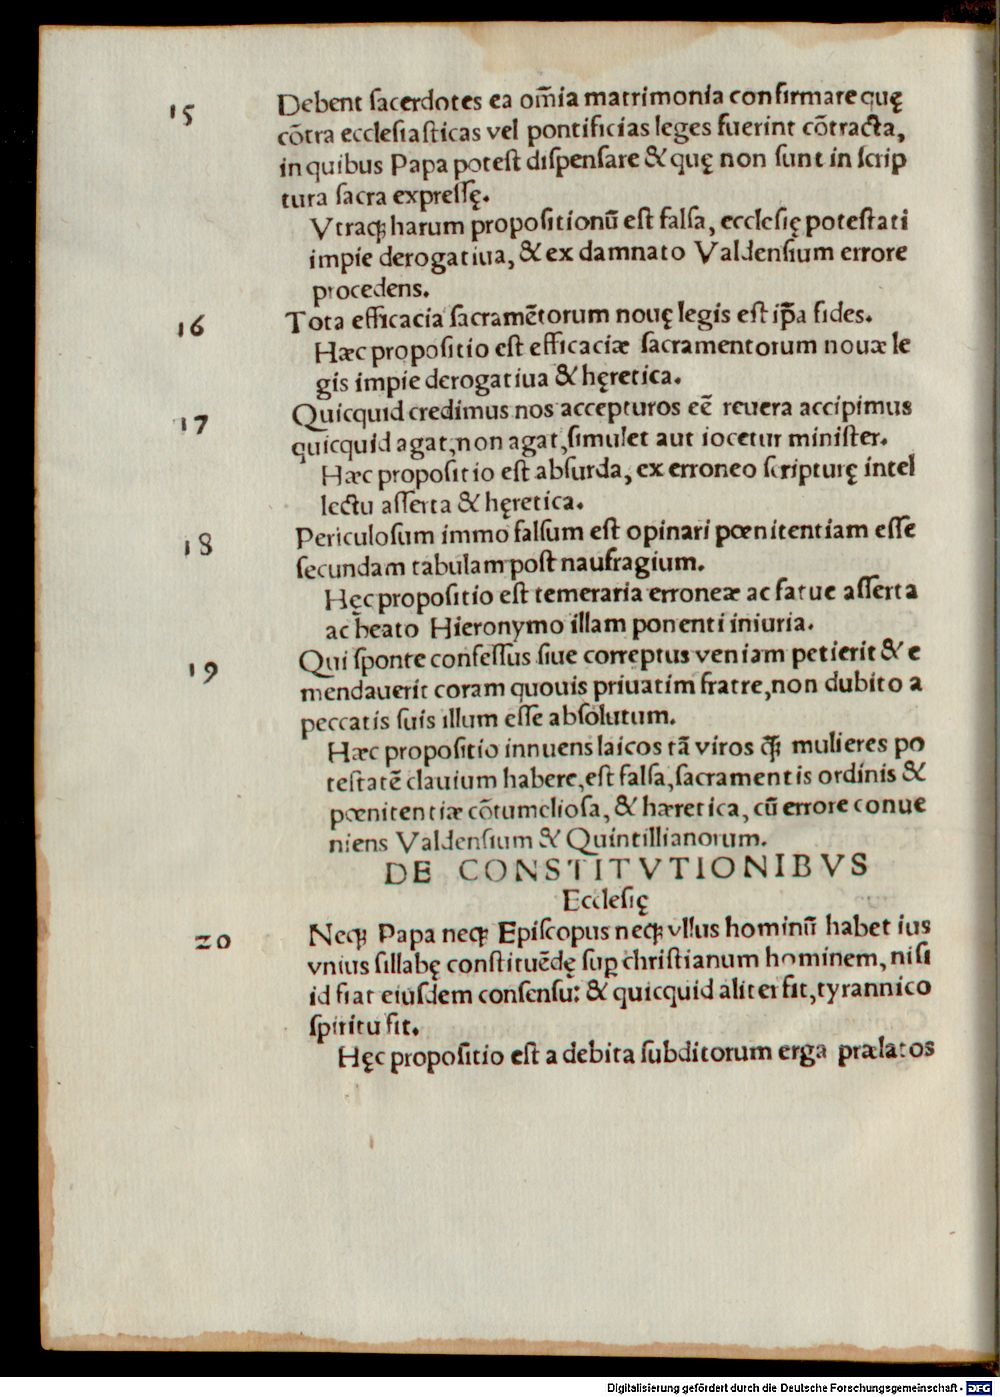 15 Debent ſacerdotes ea om̄ia matrimonia confirmare quę
cõtra eccleſiaſticas vel pontificias leges fuerint cõtracta,
in quibus Papa poteſt diſpenſare & quę non ſunt in ſcrip
tura ſacra expreſſę.
Vtraqꝫ harum propoſitionū eſt falſa, eccleſię poteſtati
impie derogatiua, & ex damnato Valdenſium errore
procedens.
16 Tota efficacia ſacramētorum nouę legis eſt ip̄a fides.
Hæc propoſitio eſt efficaciæ ſacramentorum nouæ le
gis impie derogatiua & hęretica.
17 Quicquid credimus nos accepturos eē reuera accipimus
quicquid agat, non agat, ſimulet aut iocetur miniſter.
Hæc propoſitio eſt abſurda, ex erroneo ſcripturę intel
lectu aſſerta & hęretica.
18 Periculoſum immo falſum eſt opinari pœnitentiam eſſe
ſecundam tabulam poſt naufragium.
Hęc propoſitio eſt temeraria erroneæ ac fatue aſſerta
ac beato Hieronymo illam ponenti iniuria.
19 Qui ſponte confeſſus ſiue correptus veniam petierit & e
mendauerit coram quouis priuatim fratre, non dubito a
peccatis ſuis illum eſſe abſolutum.
Hæc propoſitio innuens laicos tā viros q̄ꝫ mulieres po
teſtatē clauium habere, eſt falſa, ſacramentis ordinis &
pœnitentiæ cõtumelioſa, & hæretica, cū errore conue
niens Valdenſium & Quintillianorum.
DE CONSTITVTIONIBVS
Eccleſię
20 Neqꝫ Papa neqꝫ Epiſcopus neqꝫ vllus hominū habet ius
vnius ſillabę conſtituēdę ſuꝑ chriſtianum hominem, niſi
id fiat eiuſdem conſenſu: & quicquid aliter fit, tyrannico
ſpiritu fit.
Hęc propoſitio eſt a debita ſubditorum erga prælatos
Digitalisierung gefördert durch die Deutsche Forschungsgemeinschaft - DFG